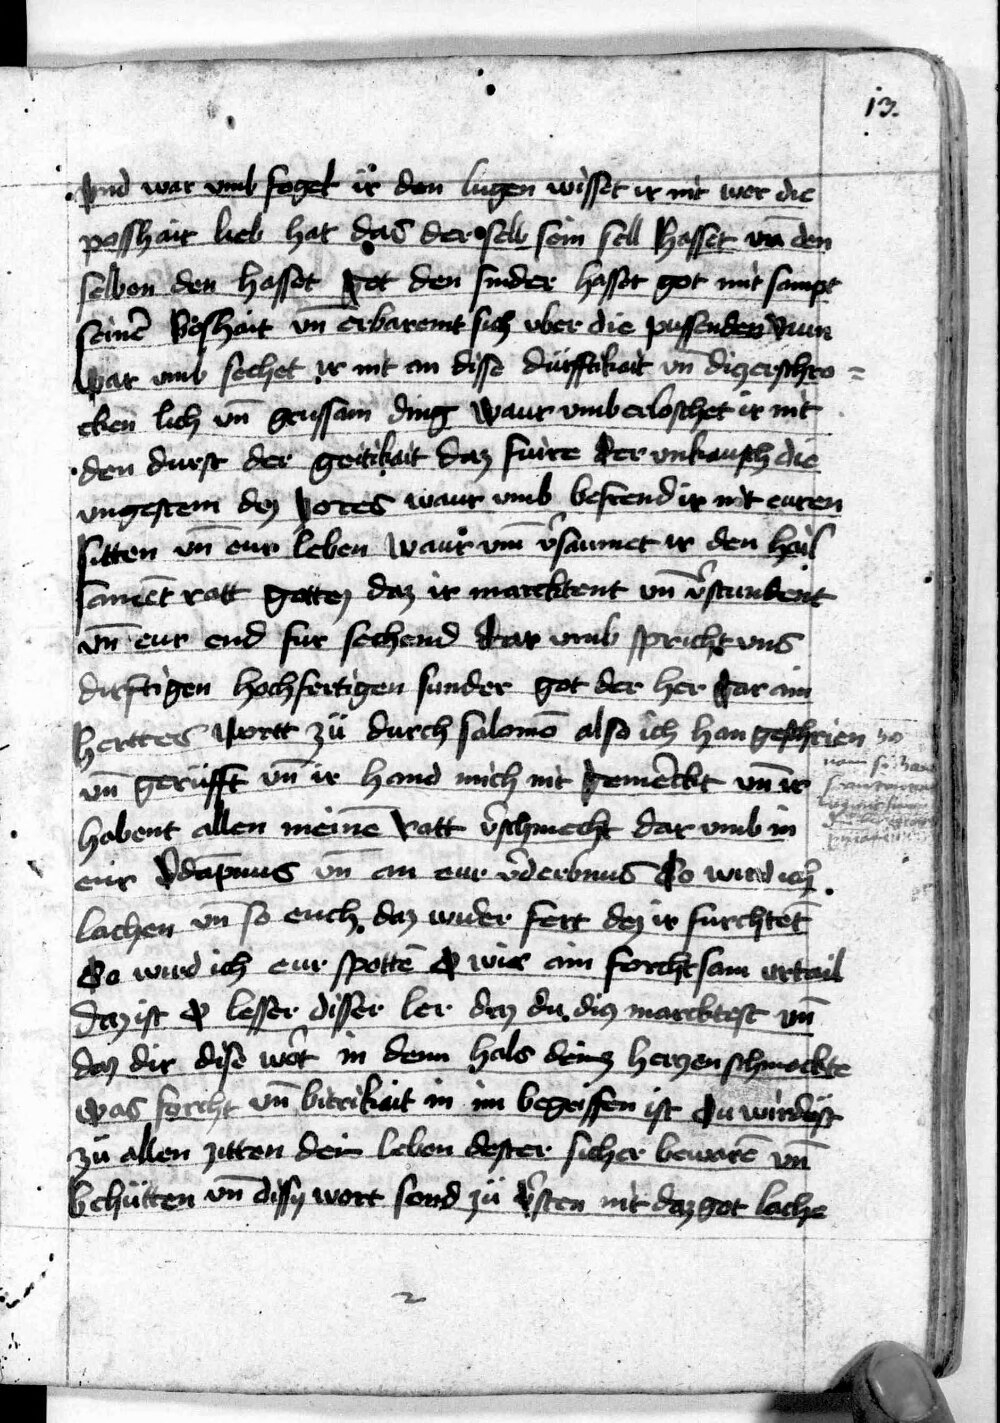 13.
Vnd war vmb foget ir den lugen wisset ir nit wer die
posshait lieb hat das der selb sein sell hasset vn̄ den
selbon den hasset got den sunder hasset got mit sampt
seiner boshait vn̄ erbaremt sich vber die pussenden Nun
war vmb sechet ir nit an disse dürfftikait vn̄ diz erschro=
cken lich vn̄ grussam ding Waur vmb erloschet ir nit
den durst der geitikait daz fuire der vnkausch die
vngestem dez vores waur vmb bessrend ir nit euren
sitten vn̄ eur leben Waur vm̄ v̄saumet ir den hail
samen̄t ratt gottez daz ir marcktent vn̄ v̄stundent
vn̄ eur end fur sechend Dar vmb spricht vns
dirftigen hochfertigen sunder got der her gar ain
herttes wortt zü durch salomō also ich han geschrien
vn̄ gerüfft vn̄ ir hand mich nit gemerckt vn̄ ir
habent allen meinē ratt v̄schmecht dar vmb in
eur v̄dāpnus vn̄ an eur v̄derbnus So wird ich
lachen vn̄ so euch daz wider fert dez ir furchtēt
So wird ich eur spottē O wie ain forchtsam vrtail
Daz ist O lesser disser ler daz du diz marcktest vn̄
daz dir dise wort in denn hals deinz herzen schmeckte
was forcht vn̄ bitrikait in im begriffen ist Du wirdest
zü allen zitten dein leben dester sicher bewarē vn̄
behütten vn̄ dissy wort send zü v̄sten nit daz got lache